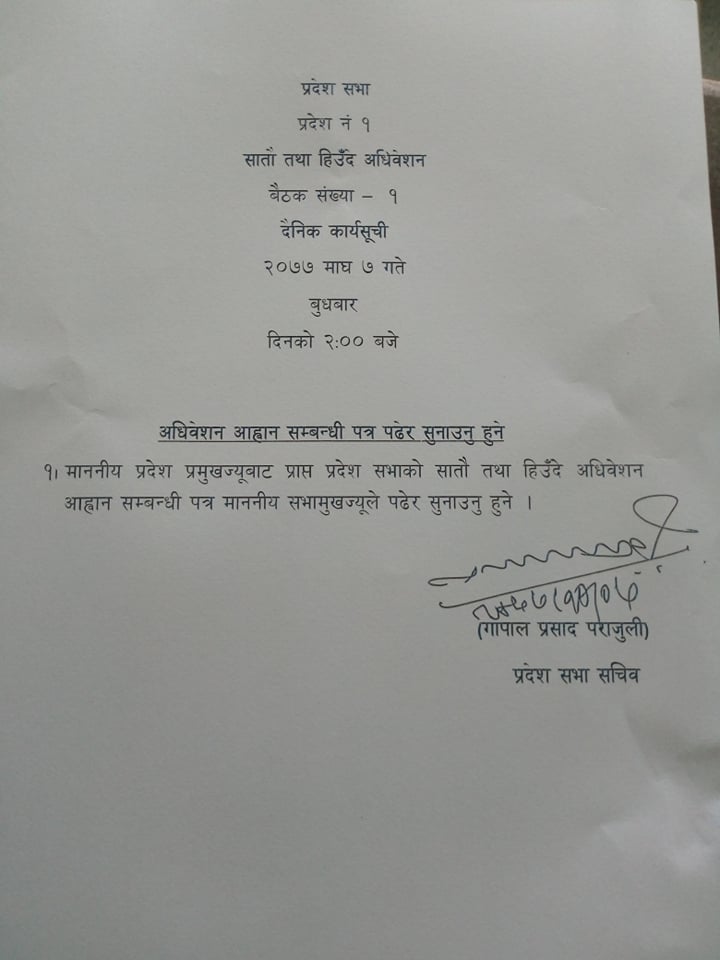 प्रदेश सभा
प्रदेश नं १
सातौ तथा हिउँदे अधिवेशन
बैठक संख्या – १
दैनिक कार्यसूची
२०७७ माघ ७ गते
बुधबार
दिनको २:०० बजे
अधिवेशन आह्वान सम्बन्धी पत्र पढेर सुनाउनु हुने
१। माननीय प्रदेश प्रमुखज्यूबाट प्राप्त प्रदेश सभाको सातौ तथा हिउँदे अधिवेशन
आह्वान सम्बन्धी पत्र माननीय सभामुखज्यूले पढेर सुनाउनु हुने ।
(गोपाल प्रसाद पराजुली)
प्रदेश सभा सचिव